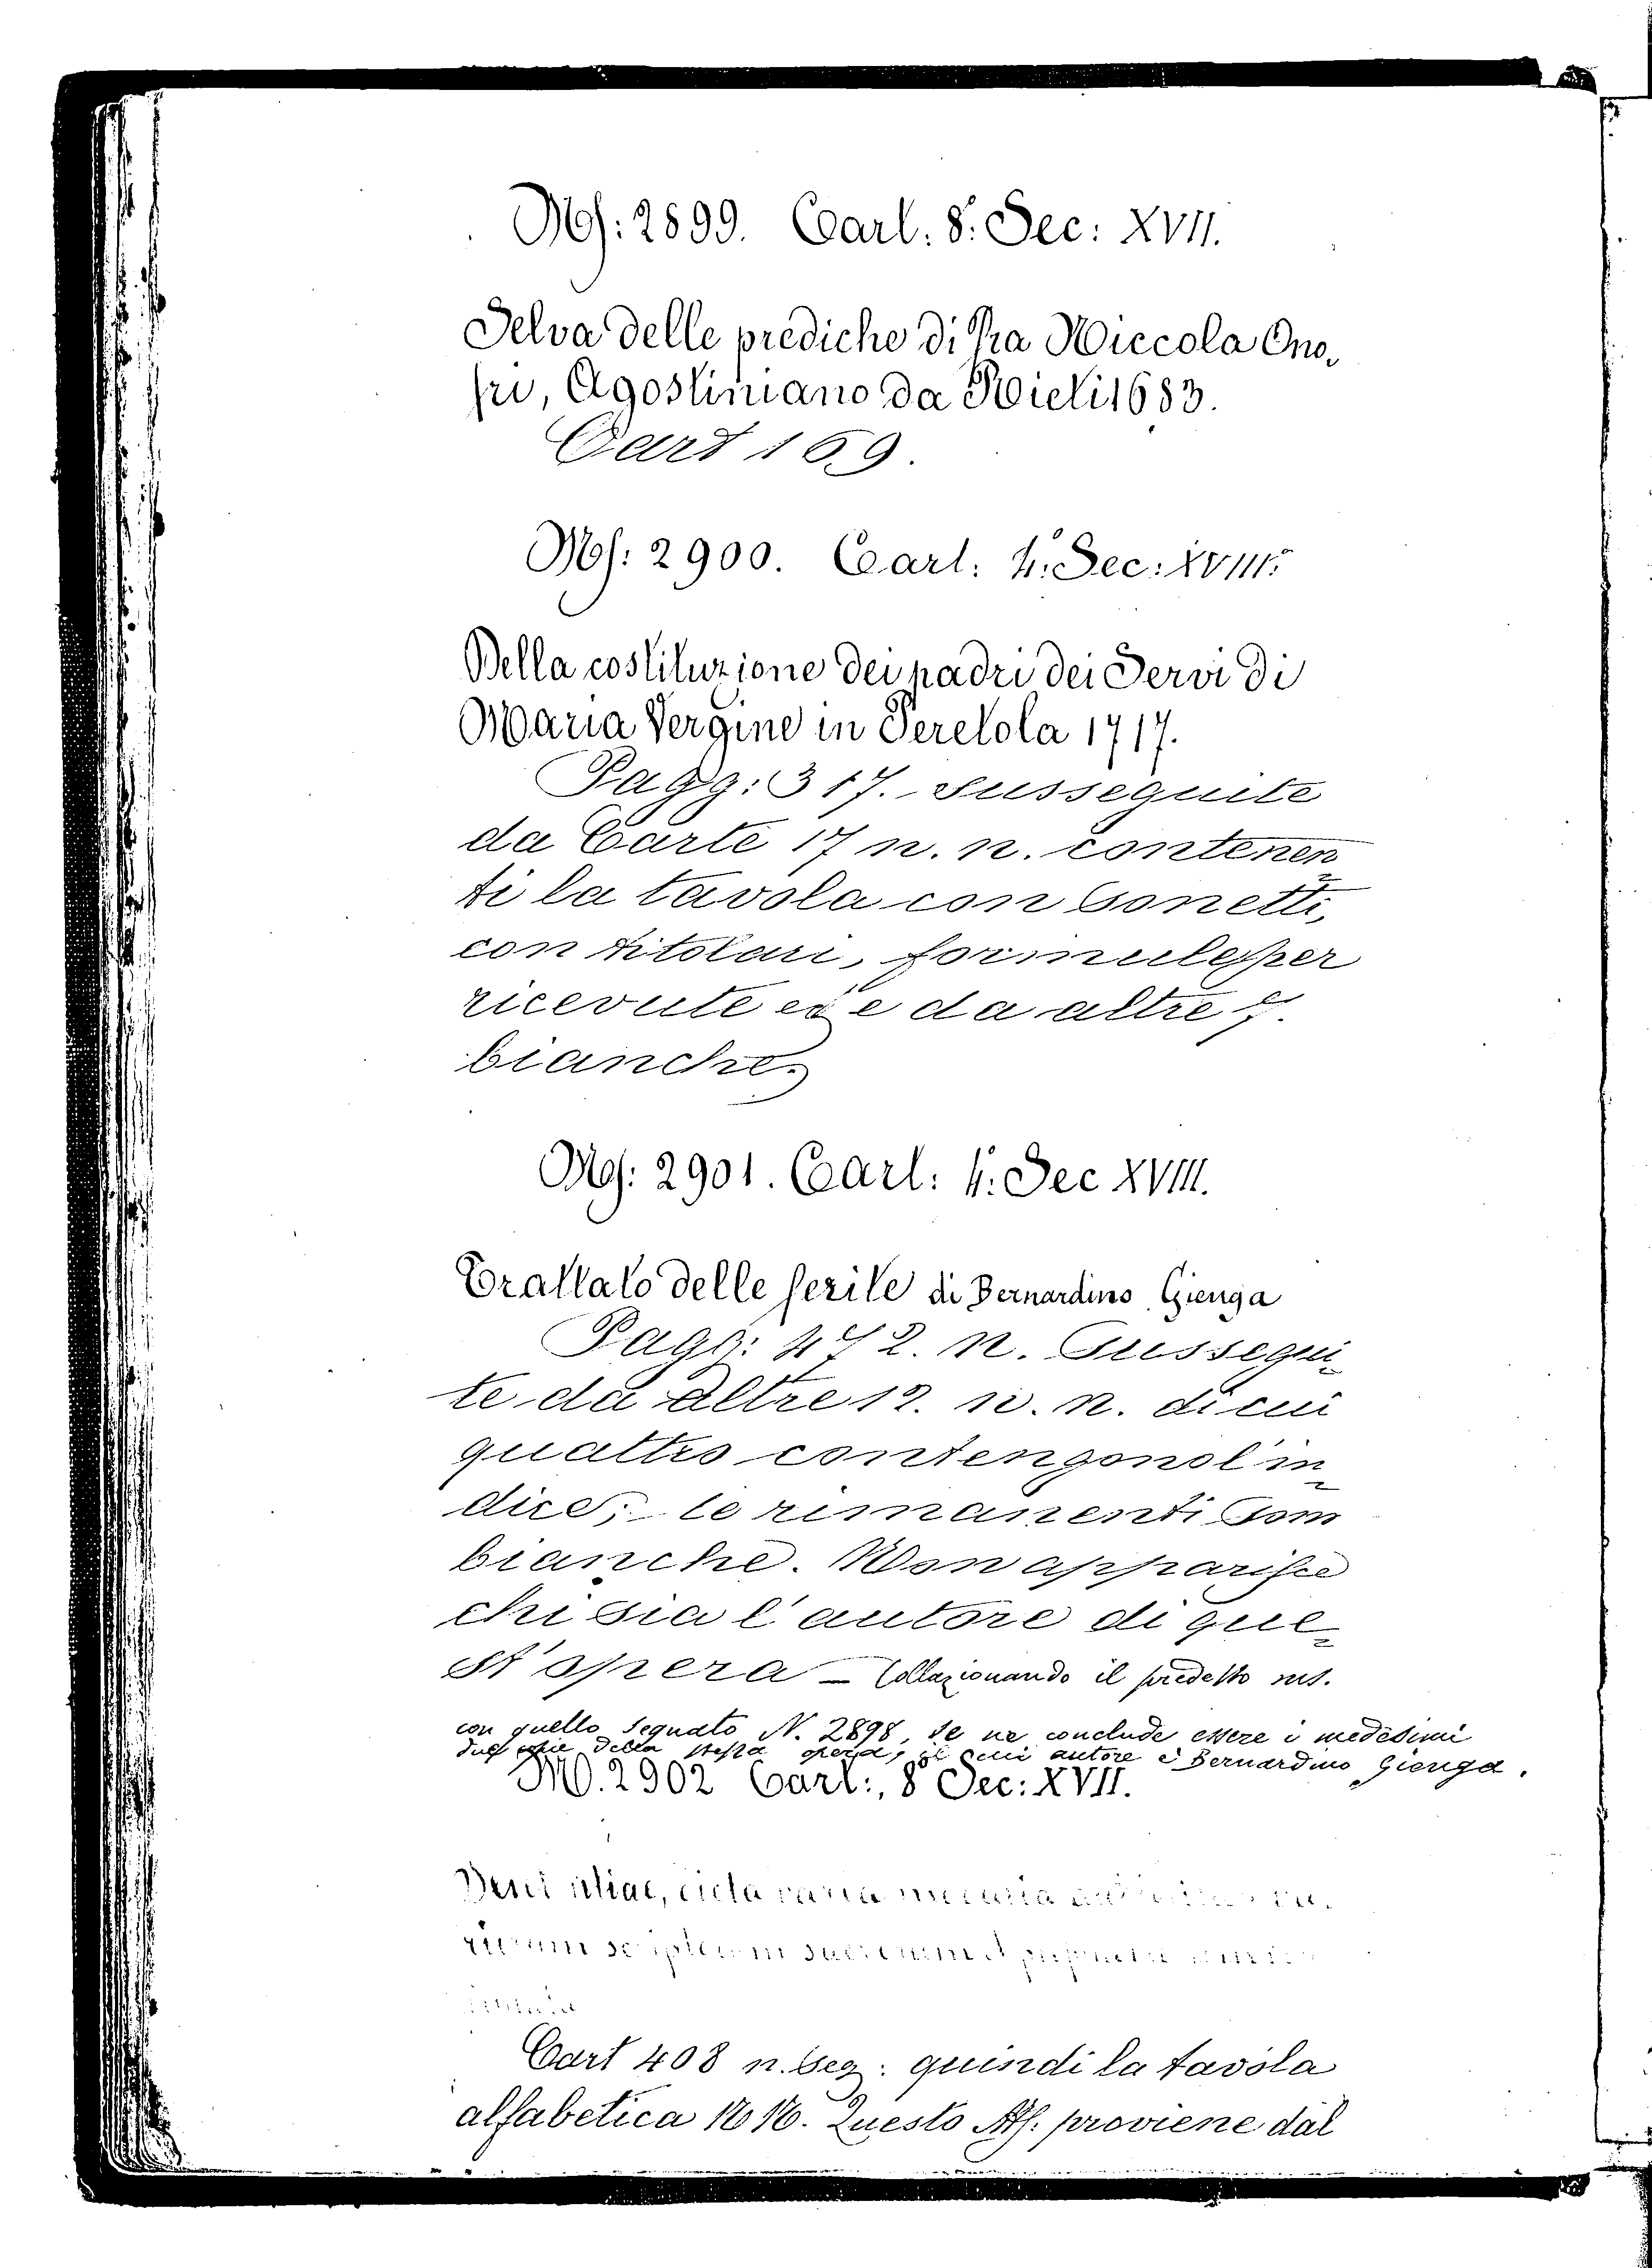 Ms: 2899. Cart. 8.° Sec: XVII.
Selva delle prediche di Fra Niccola Ono,
fri, Agostiniano da Rieti 1683.
Cart 169.
Ms: 2900. Cart: 4.° Sec: XVIII.
Della costituzione dei padri dei Servi di
Maria Vergine in Peretola 1717.
Pagg: 317. Susseguite
da Carte 17 n. n. contenen
ti la tavola con Sonetti,
con titolari, formule per
ricevute ec e da altre 7.
bianche.
Ms: 2901. Cart: 4.° Sec XVIII.
Trattato delle ferite di Bernardino Gienga
Pagg: 472. N. Sussegui
te da altre 12. n. n. di cui
quattro contengono l'in
dice; le rimanenti son
bianche. Non apparisce
chi sia l'autore di que
st'opera – Collazionando il predetto ms.
con quello segnato N. 2898, se ne conclude essere i medesimi
due copie della stessa opera, il cui autore è Bernardino Gienga.
Ms. 2902 Cart:, 8° Sec: XVII.
Cart 408 n. seg: quindi la tavola
alfabetica N N. Questo Ms. proviene dal